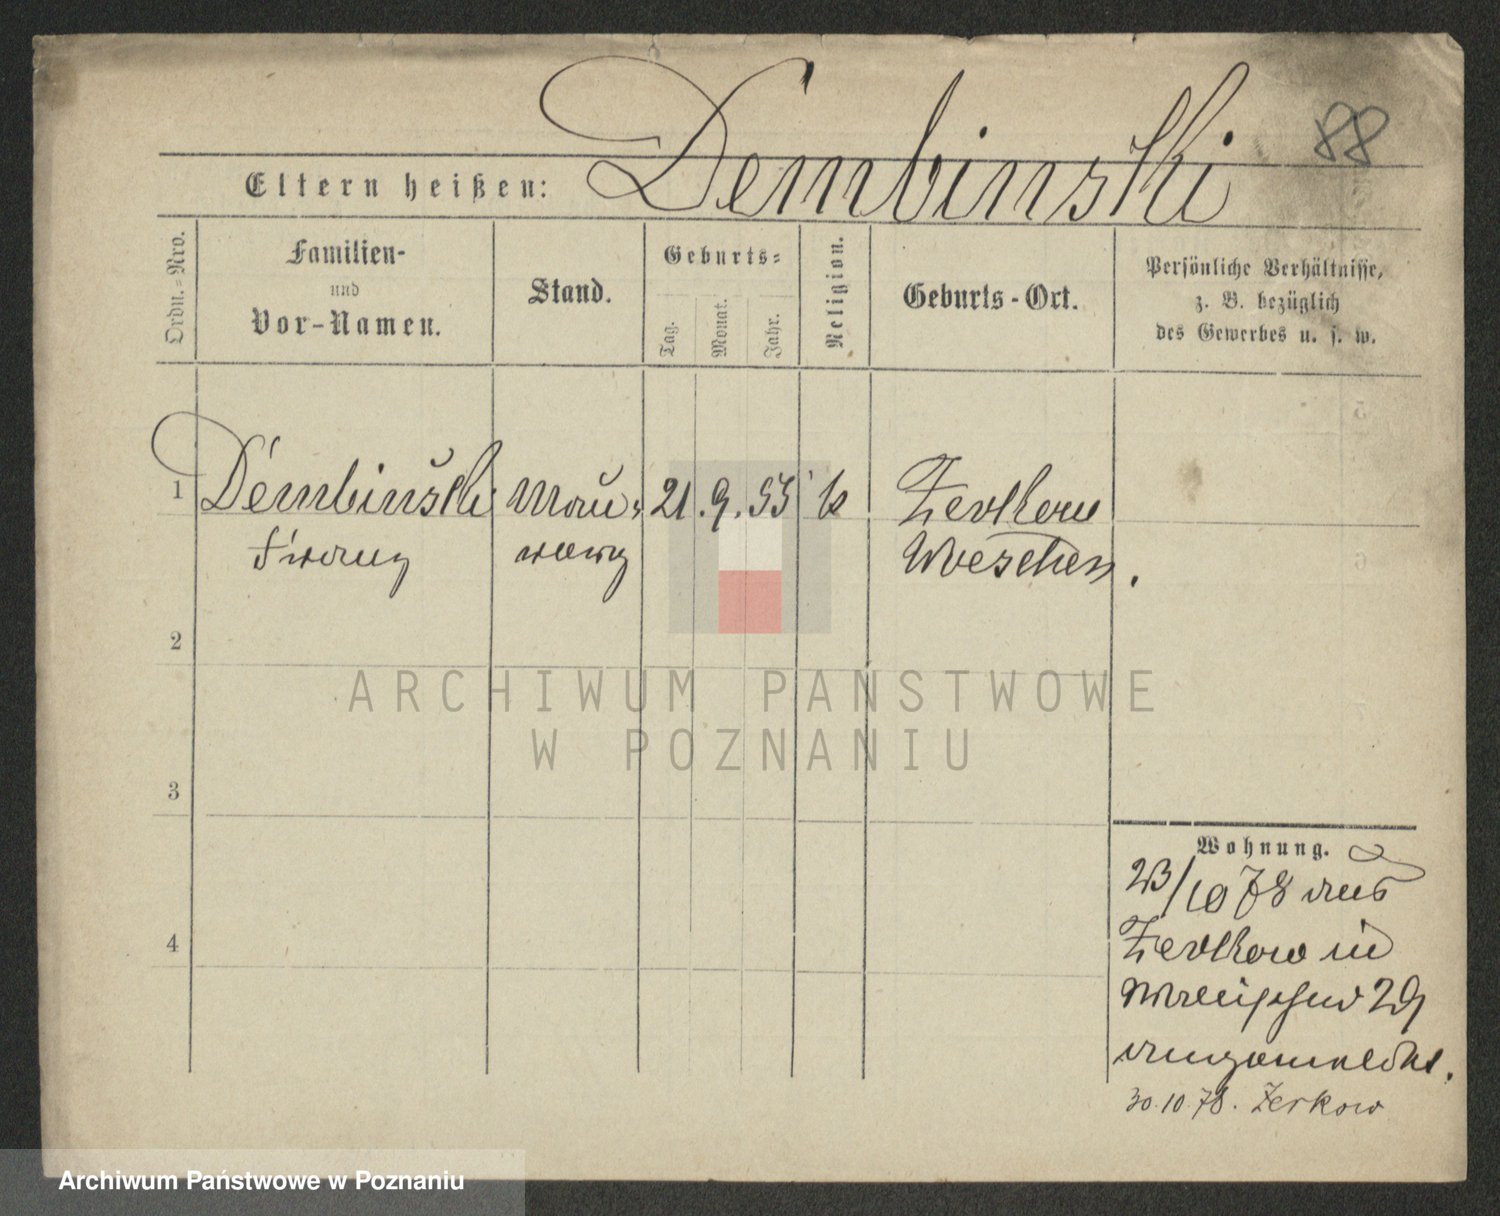 Dembinski
88
Eltern heißen:
Ordn.=Nro.
Familien-
und
Vor-Namen.
Stand.
Geburts=
Tag.
Monat.
Jahr.
Religion.
Geburts-Ort.
Persönliche Verhältnisse,
z. B. bezüglich
des Gewerbes u. s. w.
1
Dembinski
Franz
Mau=
rerg
21.9.53
k
Zerkow
Wreschen.
2
3
4
Wohnung.
23/10 78 aus
Zerkow in
29
angemeldet.
30.10.78. Zerkow
ARCHIWUM PAŃSTWOWE
W POZNANIU
Archiwum Państwowe w Poznaniu